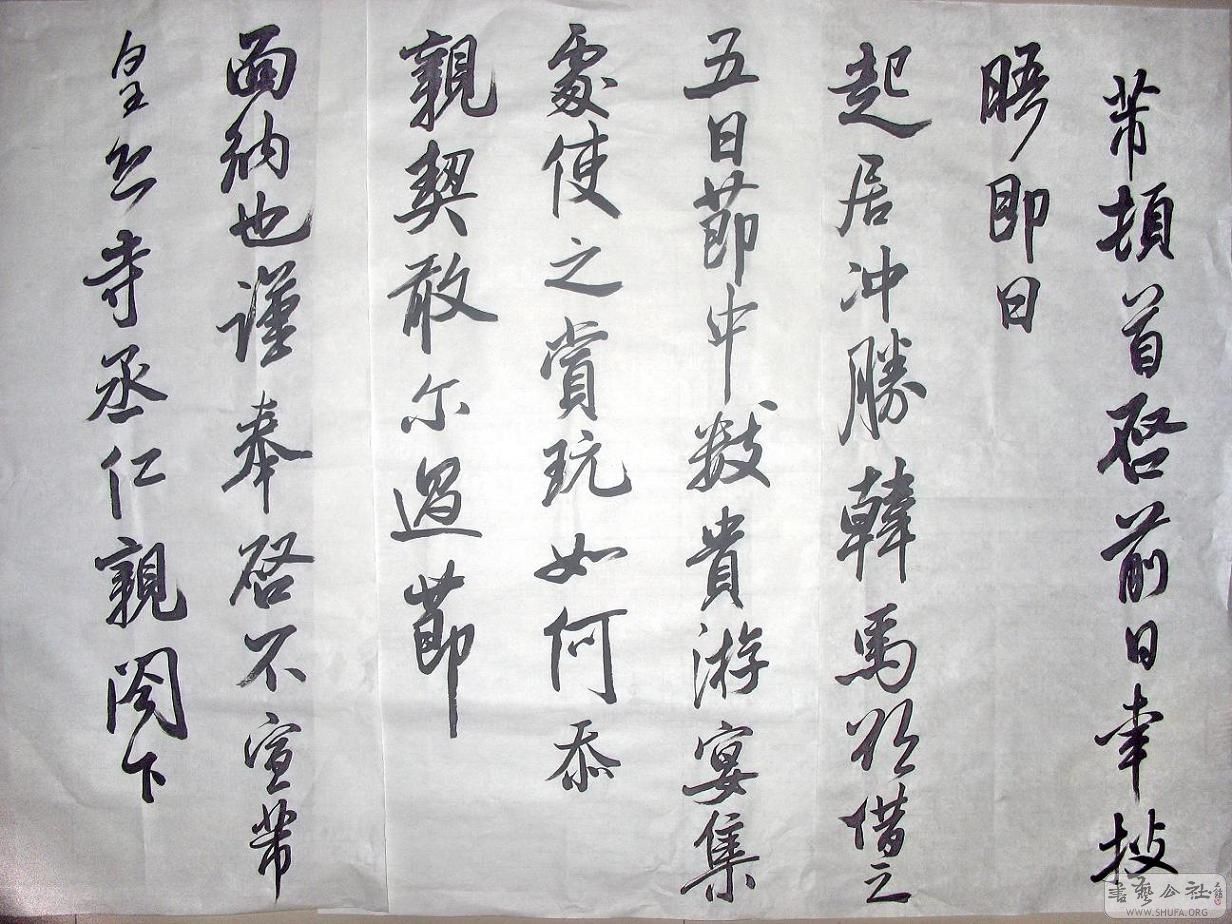 芾頓首啓前日幸披
晤即日
起居冲勝韓馬欲借三
五日節中數貴游宴集
處使之賞玩如何忝
親契敢尔過節
面納也謹奉啓不宣芾
皇恐寺丞仁親閣下
書藝公社
WWW.SHUFA.ORG